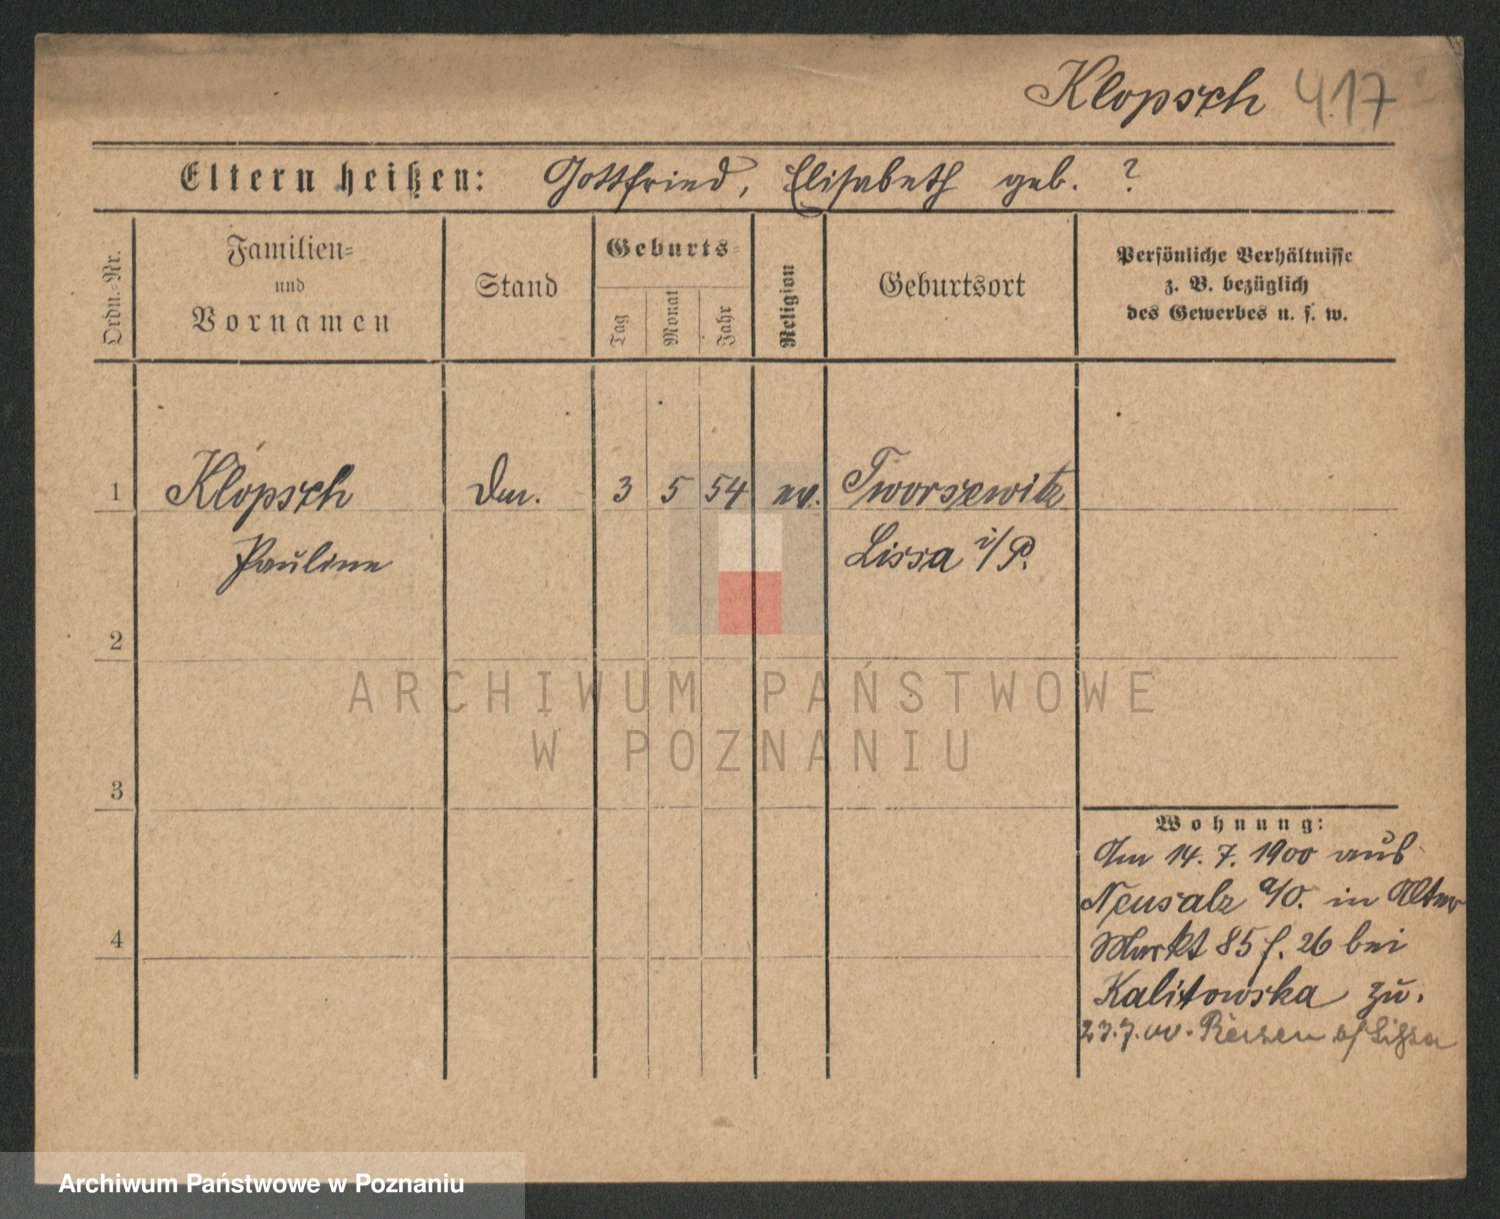 Klopsch 417
Eltern heißen: Gottfried, Elisabeth geb. ?
Ordn.-Nr.
Familien-
und
Vornamen
Stand
Geburts-
Tag
Monat
Jahr
Religion
Geburtsort
Persönliche Verhältnisse
z. B. bezüglich
des Gewerbes u. s. w.
1 Klopsch 3 5 54 ev. Tworsewitz
Pauline Lissa i/P.
2
3
4
Wohnung:
Am 14. 7. 1900 aus
Neusalz a/O. in Alter
Markt 85 f. 26 bei
Kalitowska zu.
23.7.00. Reisen b/Lissa
ARCHIWUM PAŃSTWOWE
W POZNANIU
Archiwum Państwowe w Poznaniu